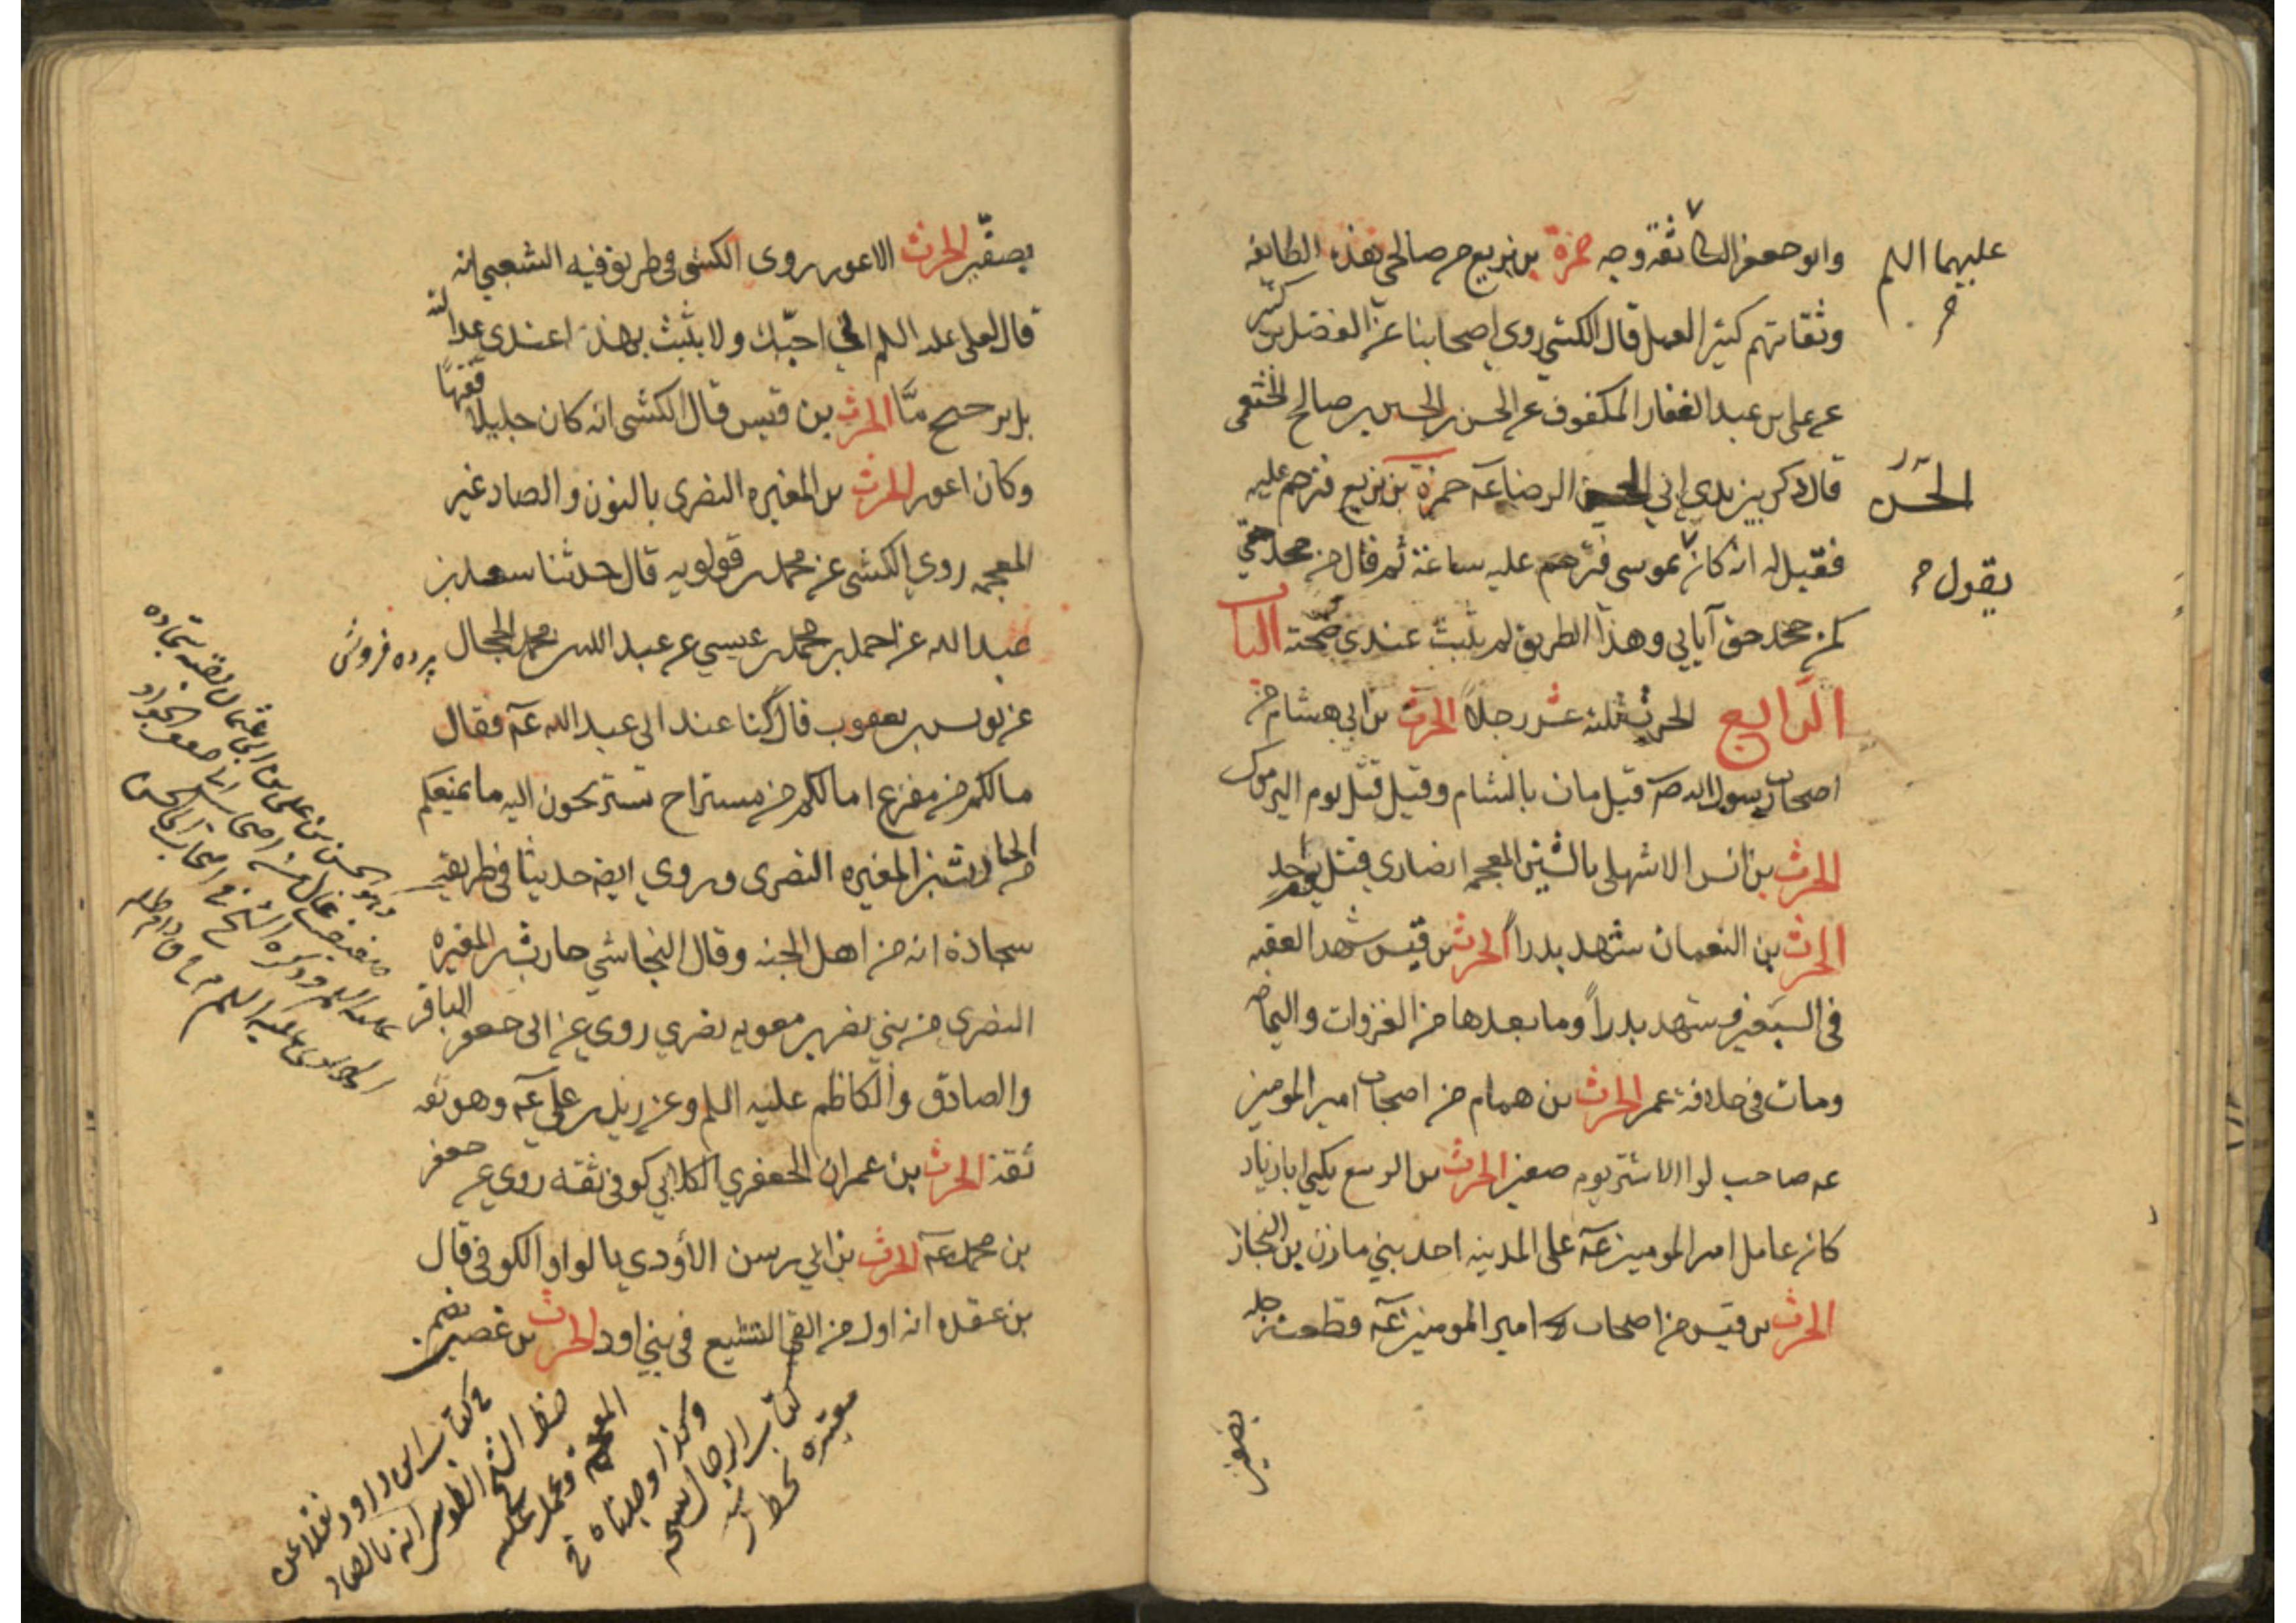 وابو جعفر الثانى ثقة وجه حمزة بن بزيع من صالحى هذه الطايفة
عليهما السلم
وثقاتهم كثير العمل قال الكشي روى اصحابنا عن الفضل بن كثير
عن على بن عبد الغفار المكفوف عن الحسن بن الحسين بن صالح الخثعمى
قال ذكر بين يدي ابي الحسن الرضا عه حمزة بن بزيع فترحم عليه
الحسن
فقيل له انه كان بموسى فترحم عليه ساعة ثم قال من جحد حقى
يقول
كمن جحد حق آبايي وهذا الطريق لم يثبت عندي صحته الباب
الرابع الحرث ثلثة عشر رجلاً الحرث بن ابي هشام من
اصحاب رسول الله صه قيل مات بالشام وقيل قتل يوم اليرموك
الحرث بن انس الاشهلى بالشين المعجمه انصاري قتل يوم احد
الحرث بن النعمان شهد بدراً الحرث بن قيس شهد العقبه
في السبعين شهد بدراً وما بعدها من الغزوات واليمامه
ومات فى خلافة عمر الحرث بن همام من اصحاب امير المومنين
عه صاحب لوا الاشتر يوم صفين الحرث بن الربيع يكنى ابا زياد
كان عامل امير المومنين عه على المدينه احد بني مازن بن النجار
الحرث بن قيس من اصحاب امير المومنين عه قطعت رجله
بصفين
بصفّين الحرث الاعور روى الكشى فى طريق فيه الشعبي انه
قال لعلى عليه السلم اني احبّك ولا يثبث بهذا عندى عدالته
بل ترجيح مّا الحرث بن قيس قال الكشى انه كان جليلا فقيهًا
وكان اعور الحرث بن المغيره النصرى بالنون والصاد غير
المعجمه روي الكشى عن محمد بن قولويه قال حدثنا سعد بن
عبد الله عن احمد بن محمد بن عيسي عن عبد الله بن محمد الحجال
پرده فروش
عن يونس بن يعقوب قال كنا عند ابي عبد الله عه فقال
مالكم من مفزع اما لكم من مستراح تستريحون اليه ما يمنعكم
من الحارث بن المغيره النصرى وروي ايضا حديثا فى طريقه
سجادة انه من اهل الجنه وقال النجاشي حارث بن المغيره
النصرى من بني نصر بن معويه نصري روى عن ابى جعفر الباقر
والصادق والكاظم عليه السلم وعن زيد بن علي عه وهو ثقه
ثقة الحرث بن عمران الجعفري الكلابي كوفى ثقة روي عن جعفر
بن محمد عه الحرث بن ابي رسن الأودي بالواو الكوفى قال
بن عقده انه اول من القى التشيع فى بني اود الحرث بن غصين بضم
وهو الحسن بن على بن ابى عثمان لقبه سجاده
فى كتاب ابن داود نقلا عن
خط الشيخ الطوسى انه بالصاد
المعجمه
وكذا وجدناه فى
كتاب الرجال
معتبره بخط